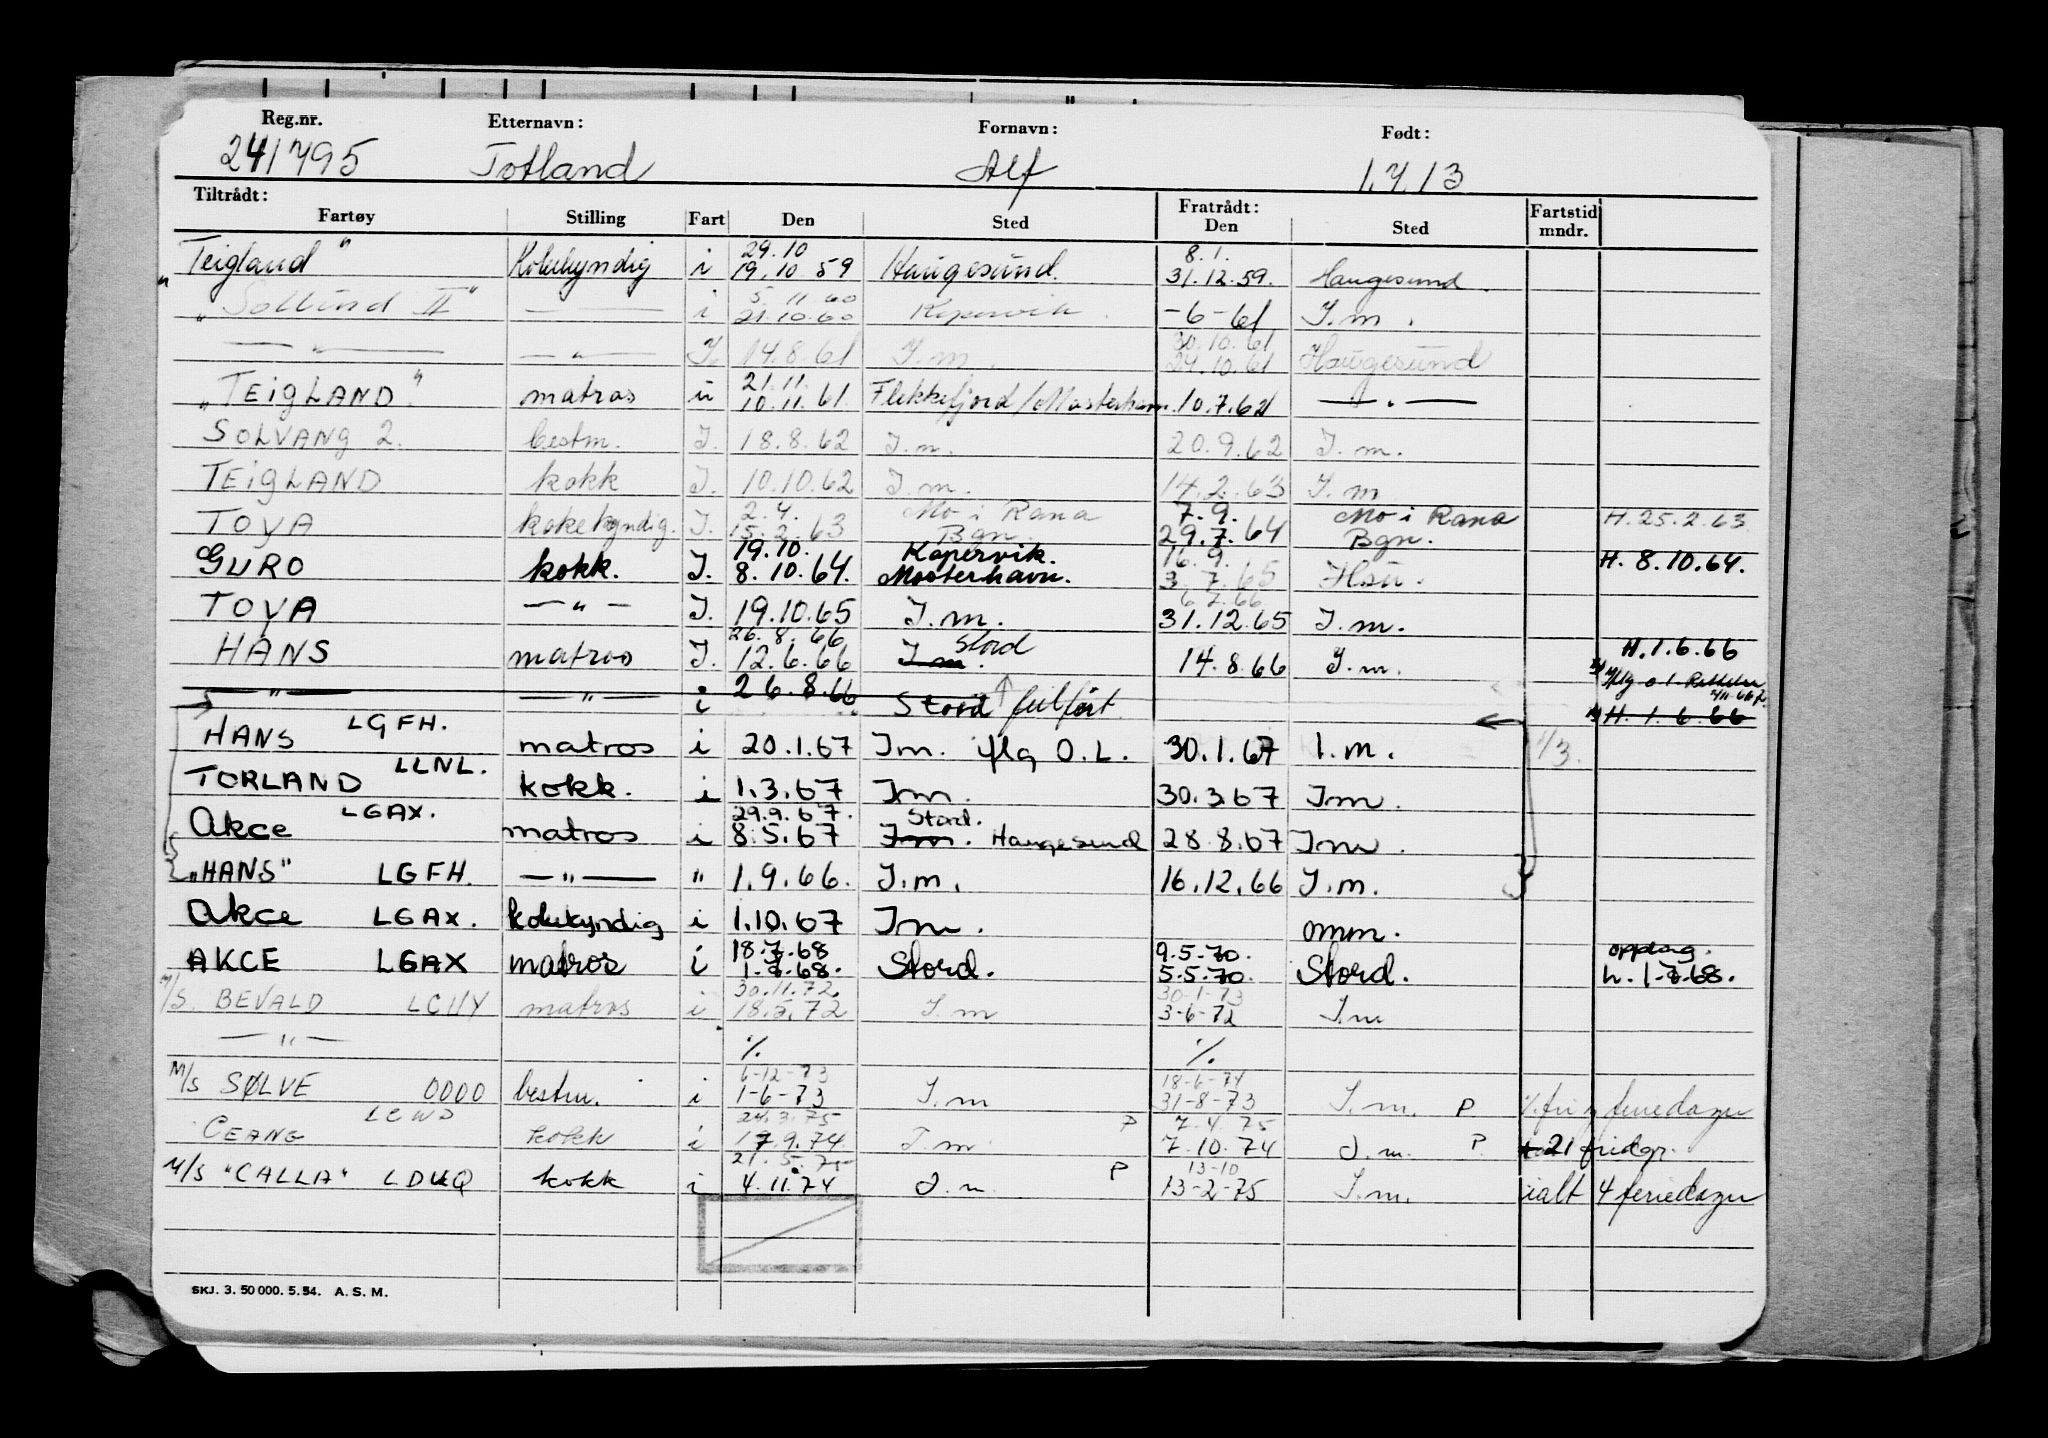 Reg.nr. Etternavn: Fornavn: Født:
241795 Totland Alf 1.7.13
Tiltrådt: Fratrådt: Fartstid
Fartøy Stilling Fart Den Sted Den Sted mndr.
29.10 8.1.
"Teigland" Kokekyndig i 19.10.59 Haugesund. 31.12.59. Haugesund.
5.11.60
"Sollund II" — — i 21.10.60 Kopervik. -6-61 I.m.
30.10.61
— " — — " — I. 14.8.61 I.m. 24.10.61 Haugesund
21.11.
"TEIGLAND" matros u 10.11.61. Flekkefjord/Mosterhavn 10.7.62 — " —
SOLVANG 2. bestm. I. 18.8.62 I.m. 20.9.62 I.m.
TEIGLAND kokk I. 10.10.62 I.m. 14.2.63 I.m.
2.4. Mo i Rana 7.9. Mo i Rana
TOVA kokekyndig. I. 15.2.63 Bgn. 29.7.64 Bgn. H.25.2.63
19.10. Kopervik. 16.9.
GURO kokk. I. 8.10.64. Mosterhavn. 3.7.65 Hsu. H. 8.10.64.
6.7.66
TOVA — " — I. 19.10.65 I.m. 31.12.65 I.m.
26.8.66 Stord H.1.6.66
HANS matros I. 12.6.66 I.m. 14.8.66 I.m.
— " — — " — i 26.8.66 Stord feilført H. 1.6.66
HANS LGFH. matros i 20.1.67 Im. iflg O.L. 30.1.67 I.m. 1/3.
TORLAND LLNL. kokk. i 1.3.67 Im. 30.3.67 Im.
29.9.67. Stord.
Akce LGAX. matros i 8.5.67 Im. Haugesund 28.8.67 Im.
"HANS" LGFH. — " — " 1.9.66. I.m. 16.12.66 I.m.
Akce LGAX. kokekyndig i 1.10.67 Im. omm.
18.7.68 9.5.70. oppdag.
AKCE LGAX matros i 1.7.68. Stord. 5.5.70. Stord. h. 1-7-68.
30.11.72. 30-1-73
M/S. BEVALD LCHY matros i 18.5.72 I.m 3-6-72 I.m
— " — % %
6-12-73 18-6-74
M/S SØLVE 0000 bestm. i 1-6-73 I.m 31-8-73 I.m. P %fri feriedager
24.3.75 P 7.4.75
CEANG LCWD kokk i 17.9.74. I.m. 7.10.74 I.m. P. 21 fridgr.
21.5.75 P 13-10
M/S "CALLA" LDUQ kokk i 4.11.74 I.m. 13-2-75 I.m. ialt 4 feriedager
SKJ. 3. 50 000. 5. 54. A. S. M.